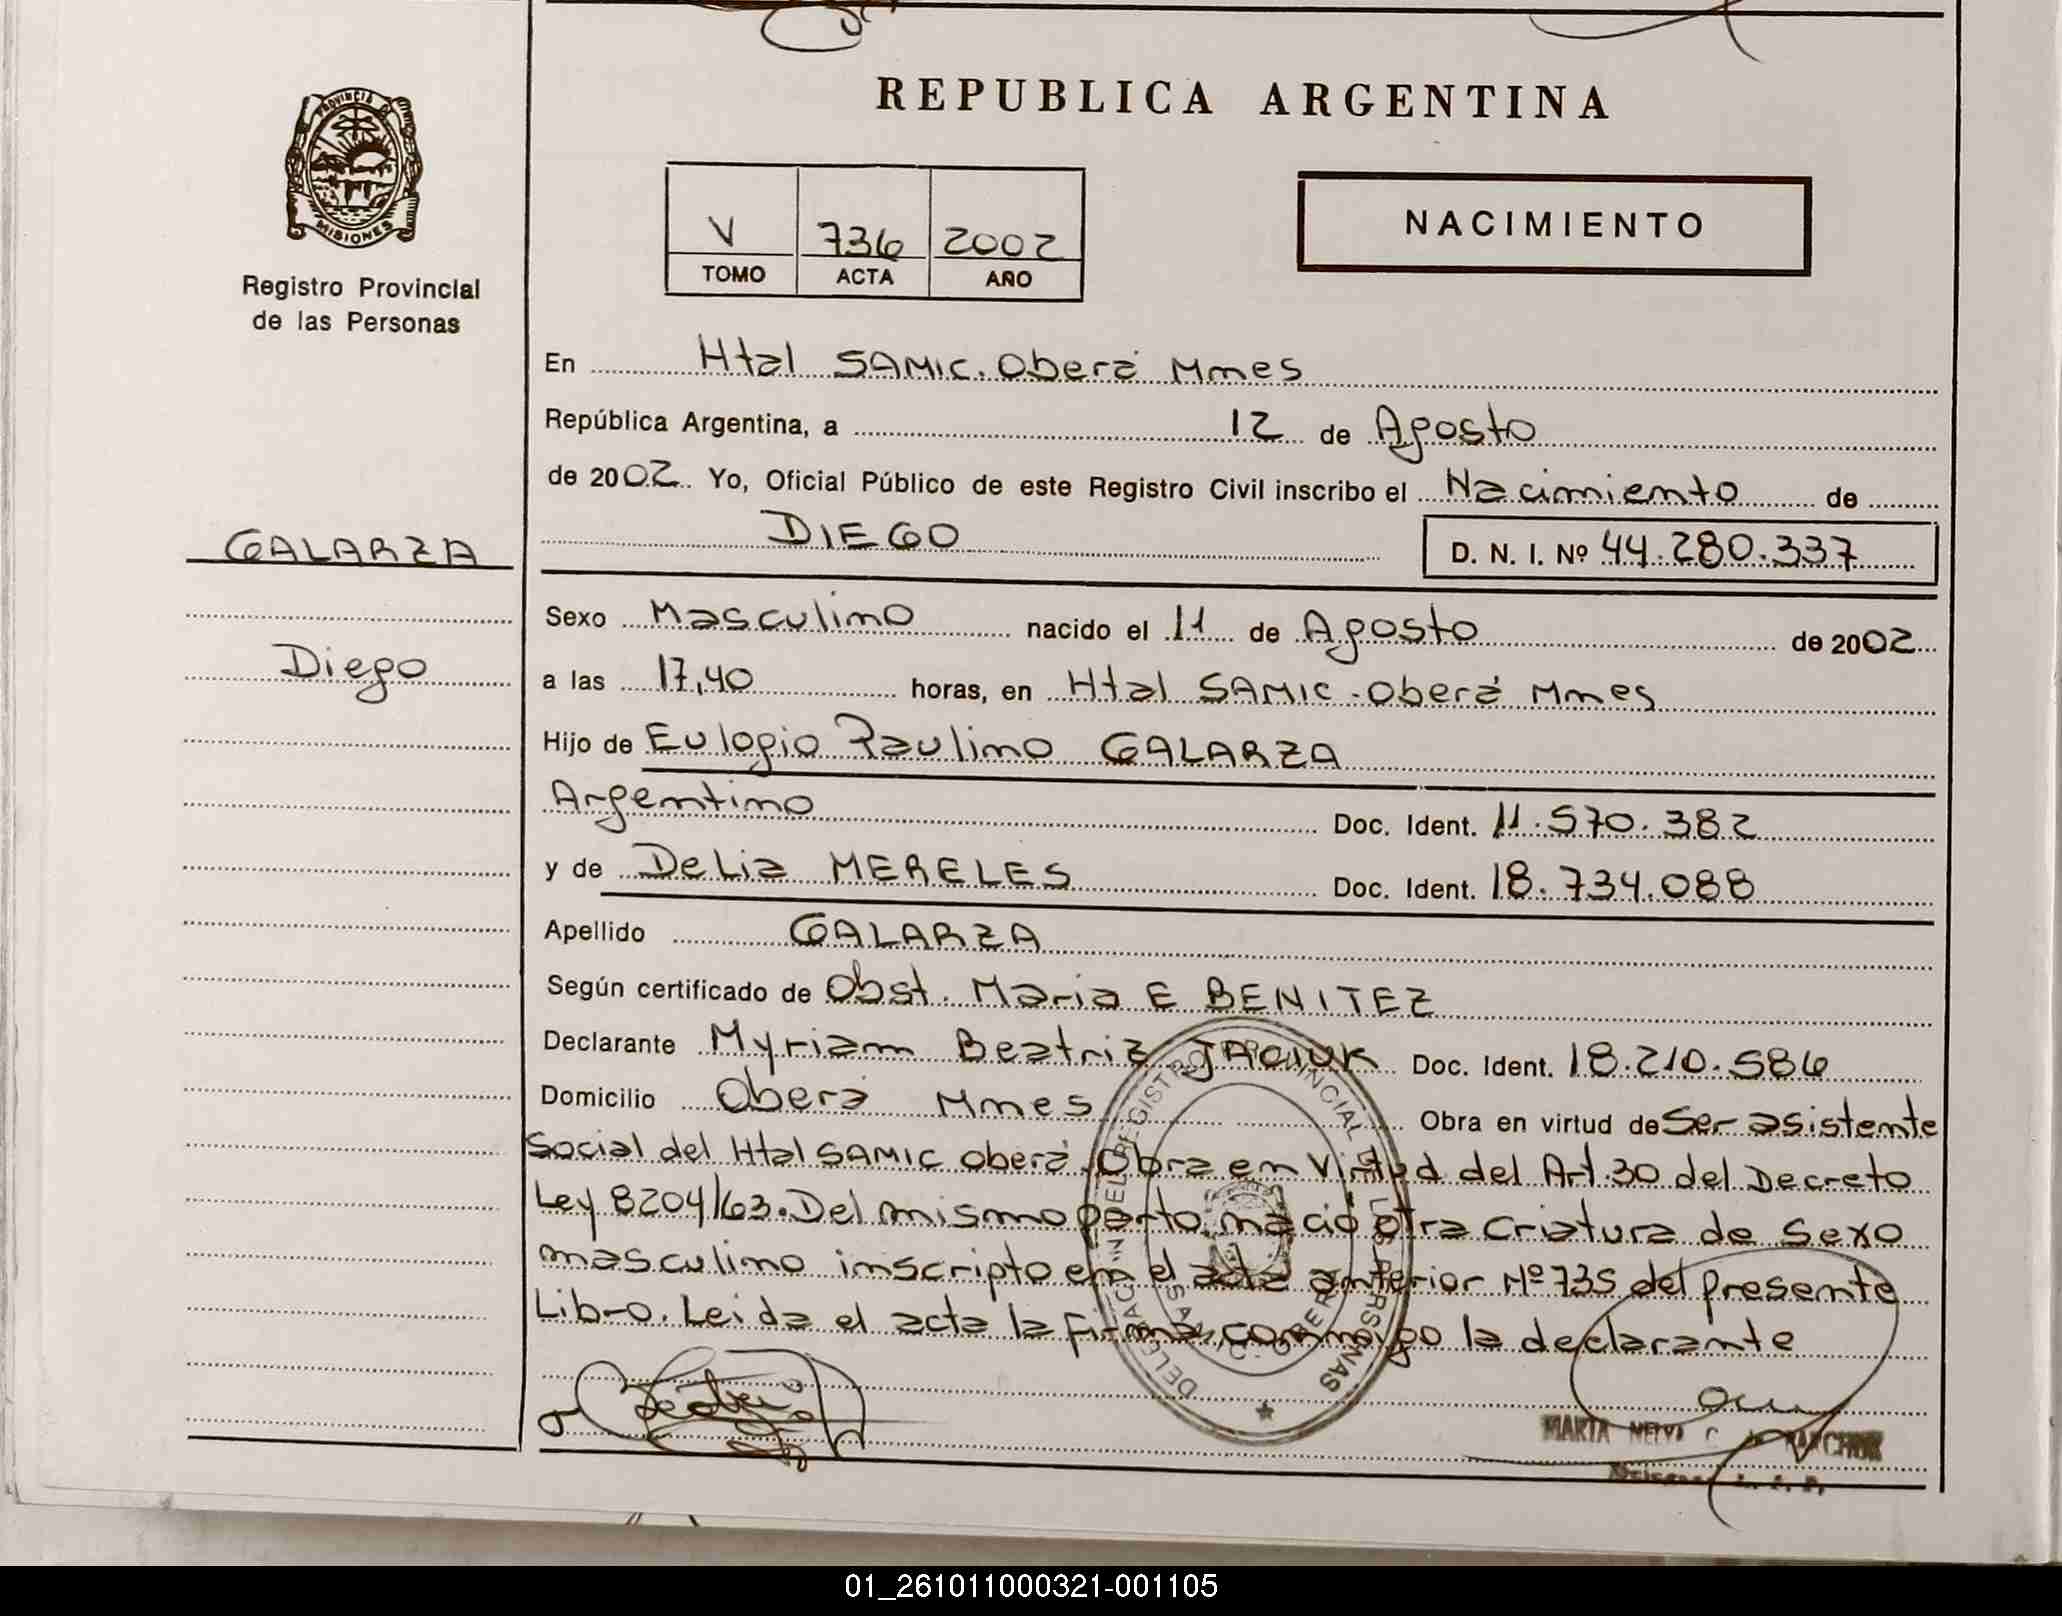 REPUBLICA ARGENTINA
PROVINCIA DE
MISIONES
Registro Provincial
de las Personas
V 736 2002
TOMO ACTA AÑO
NACIMIENTO
En Htal SAMIC. Oberá Mnes
República Argentina, a 12 de Agosto
de 2002 Yo, Oficial Público de este Registro Civil inscribo el Nacimiento de
DIEGO D. N. I. Nº 44.280.337
GALARZA
Diego
Sexo Masculino nacido el 11 de Agosto de 2002
a las 17,40 horas, en Htal SAMIC. Oberá Mnes
Hijo de Eulogio Paulino GALARZA
Argentino Doc. Ident. 11.570.382
y de Delia MERELES Doc. Ident. 18.734.088
Apellido GALARZA
Según certificado de Obst. Maria E BENITEZ
Declarante Myriam Beatriz JACIUK Doc. Ident. 18.210.586
Domicilio Oberá Mnes Obra en virtud de Ser asistente
Social del Htal SAMIC Oberá. Obra en Virtud del Art. 30 del Decreto
Ley 8204/63. Del mismo parto nació otra Criatura de Sexo
masculino inscripto en el acta anterior Nº 735 del presente
Libro. Leida el acta la firma conmigo la declarante
MARTA
01_261011000321-001105